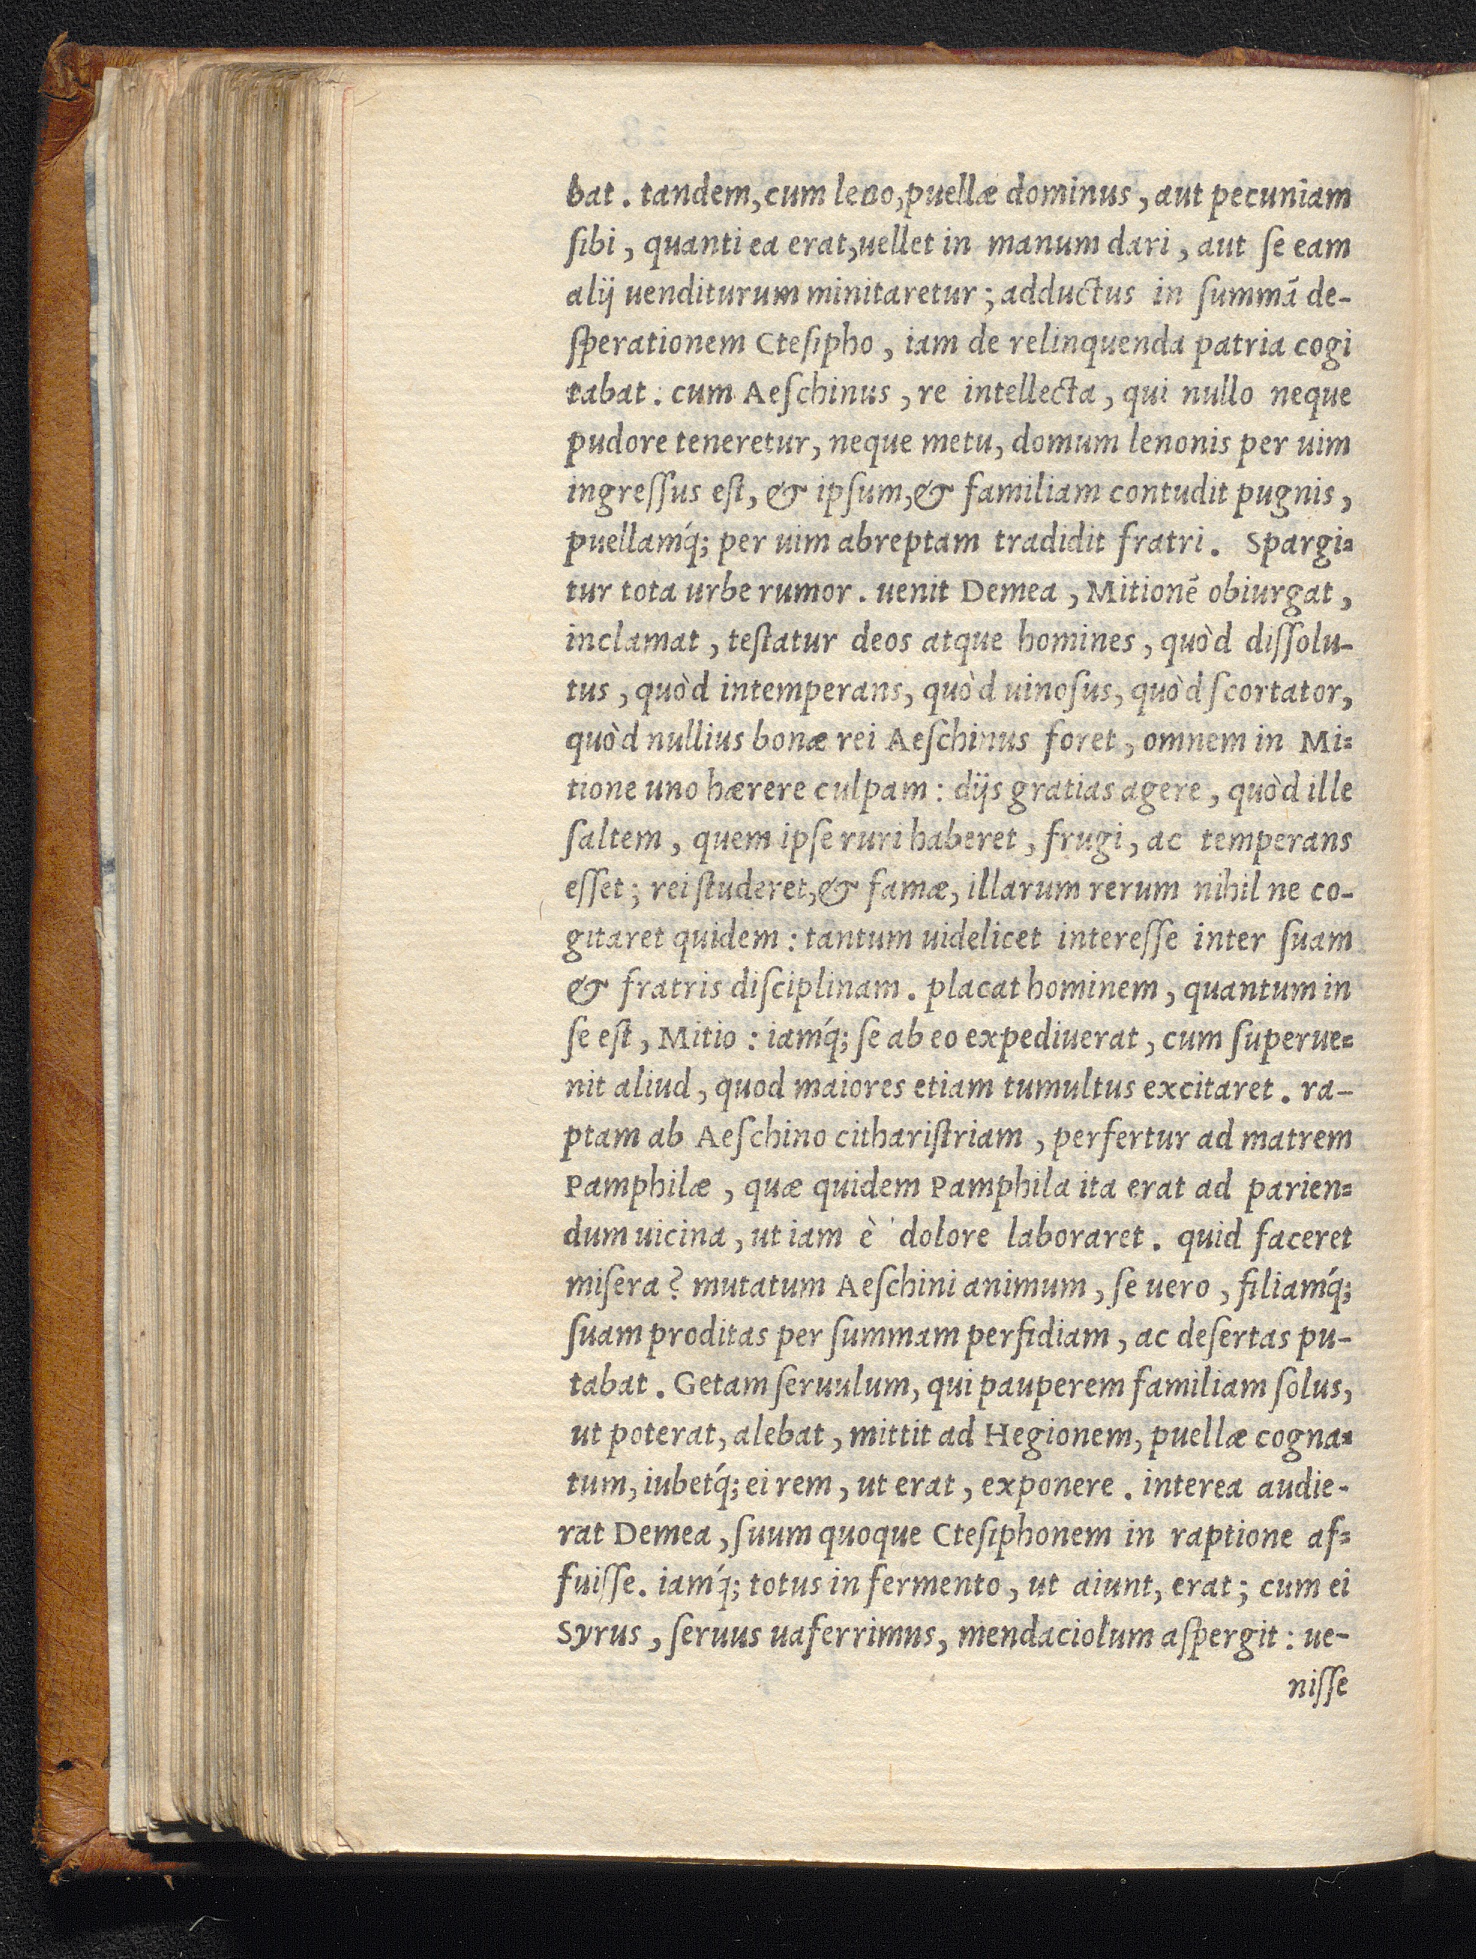 bat . tandem, cum leno, puellæ dominus , aut pecuniam
ſibi , quanti ea erat, uellet in manum dari , aut ſe eam
alij uenditurum minitaretur ; adductus in ſummā de-
ſperationem Cteſipho , iam de relinquenda patria cogi
tabat : cum Aeſchinus , re intellecta , qui nullo neque
pudore teneretur, neque metu, domum lenonis per uim
ingreſſus eſt, & ipſum, & familiam contudit pugnis ,
puellamq́; per uim abreptam tradidit fratri . Spargi=
tur tota urbe rumor . uenit Demea , Mitionē obiurgat ,
inclamat , teſtatur deos atque homines , quòd diſſolu-
tus , quòd intemperans, quòd uinoſus, quòd ſcortator,
quòd nullius bonæ rei Aeſchinus foret , omnem in Mi=
tione uno hærere culpam : dijs gratias agere , quòd ille
ſaltem , quem ipſe ruri haberet , frugi , ac temperans
eſſet ; rei ſtuderet, & famæ, illarum rerum nihil ne co-
gitaret quidem : tantum uidelicet intereſſe inter ſuam
& fratris diſciplinam . placat hominem , quantum in
ſe eſt , Mitio : iamq́; ſe ab eo expediuerat , cum ſuperue=
nit aliud , quod maiores etiam tumultus excitaret . ra-
ptam ab Aeſchino cithariſtriam , perfertur ad matrem
Pamphilæ , quæ quidem Pamphila ita erat ad parien=
dum uicina , ut iam è dolore laboraret . quid faceret
miſera ? mutatum Aeſchini animum , ſe uero , filiamq́;
ſuam proditas per ſummam perfidiam , ac deſertas pu-
tabat . Getam ſeruulum, qui pauperem familiam ſolus,
ut poterat, alebat , mittit ad Hegionem, puellæ cogna=
tum, iubetq́; ei rem , ut erat , exponere . interea audie-
rat Demea , ſuum quoque Cteſiphonem in raptione af=
fuiſſe . iamq́; totus in fermento , ut aiunt, erat ; cum ei
Syrus , ſeruus uaferrimus, mendaciolum aſpergit : ue-
niſſe